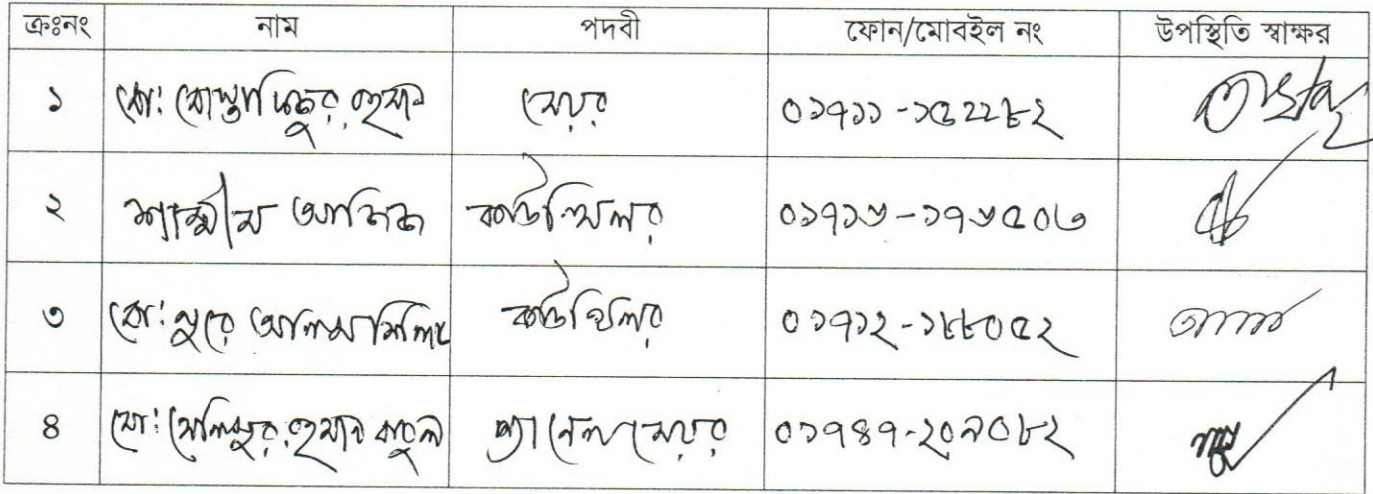 ক্রঃনং নাম পদবী ফোন/মোবইল নং উপস্থিতি স্বাক্ষর
১ মো: মোস্তাফিজুর রহমান মেয়র ০১৭১১-১৫২২৮২
২ শামীম আজিজ কাউন্সিলর ০১৭১৬-১৭৬৫০৩
৩ মো: নুরে আলম কাউন্সিলর ০১৭১২-১৮৮০৫২
৪ মো: রহমান বাবুল প্যানেল মেয়র ০১৭৪৭-২০৯০৮২